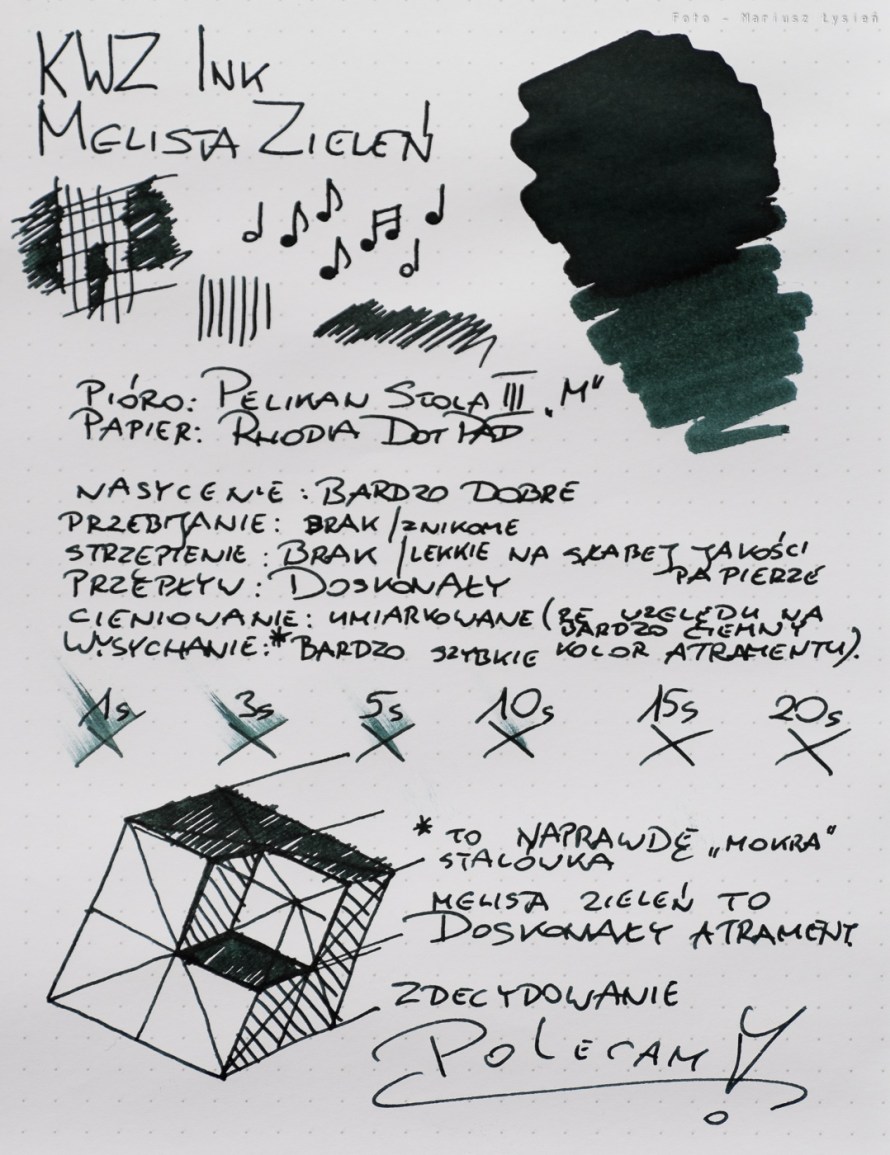 Foto - Mariusz Łysień
KWZ INK
MELISTA ZIELEŃ
PIÓRO: PELIKAN STOLA III „M"
PAPIER: RHODIA DOT PAD
NASYCENIE: BARDZO DOBRE
PRZEBIJANIE: BRAK/ZNIKOME
STRZĘPIENIE: BRAK/LEKKIE NA SŁABEJ JAKOŚCI
PAPIERZE
PRZEPŁYW: DOSKONAŁY
CIENIOWANIE: UMIARKOWANE (ZE WZGLĘDU NA
BARDZO CIEMNY
WYSYCHANIE:* BARDZO SZYBKIE KOLOR ATRAMENTU).
1s 3s 5s 10s 15s 20s
* TO NAPRAWDĘ „MOKRA"
STALÓWKA
MELISTA ZIELEŃ TO
DOSKONAŁY ATRAMENT
ZDECYDOWANIE
POLECAM!